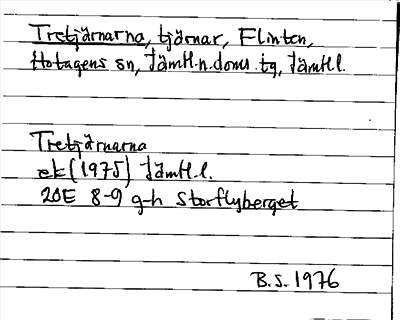 Tretjärnarna, tjärnar, Flinten,
Hotagens sn, Jämtl.n.doms.tg, Jämtl l.
Tretjärnarna
ek (1975) Jämtl.l.
20E 8-9 g-h Storflyberget
B.S. 1976